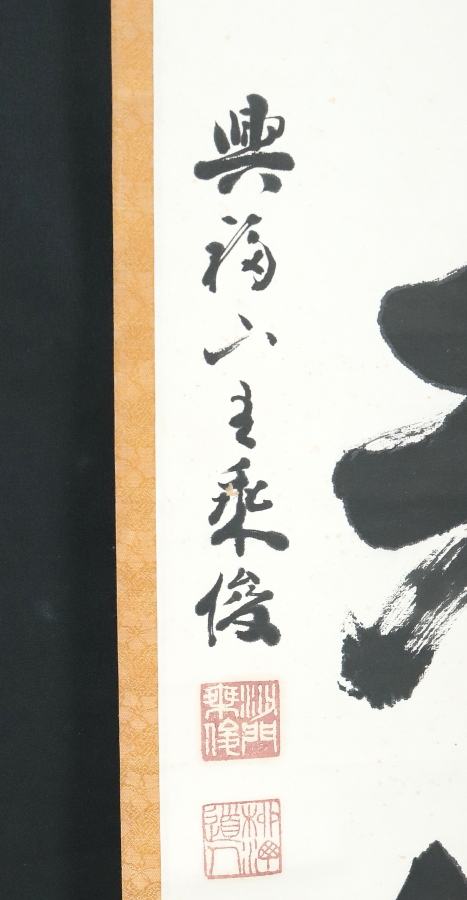 興福山主乗俊
沙門乗俊
道人